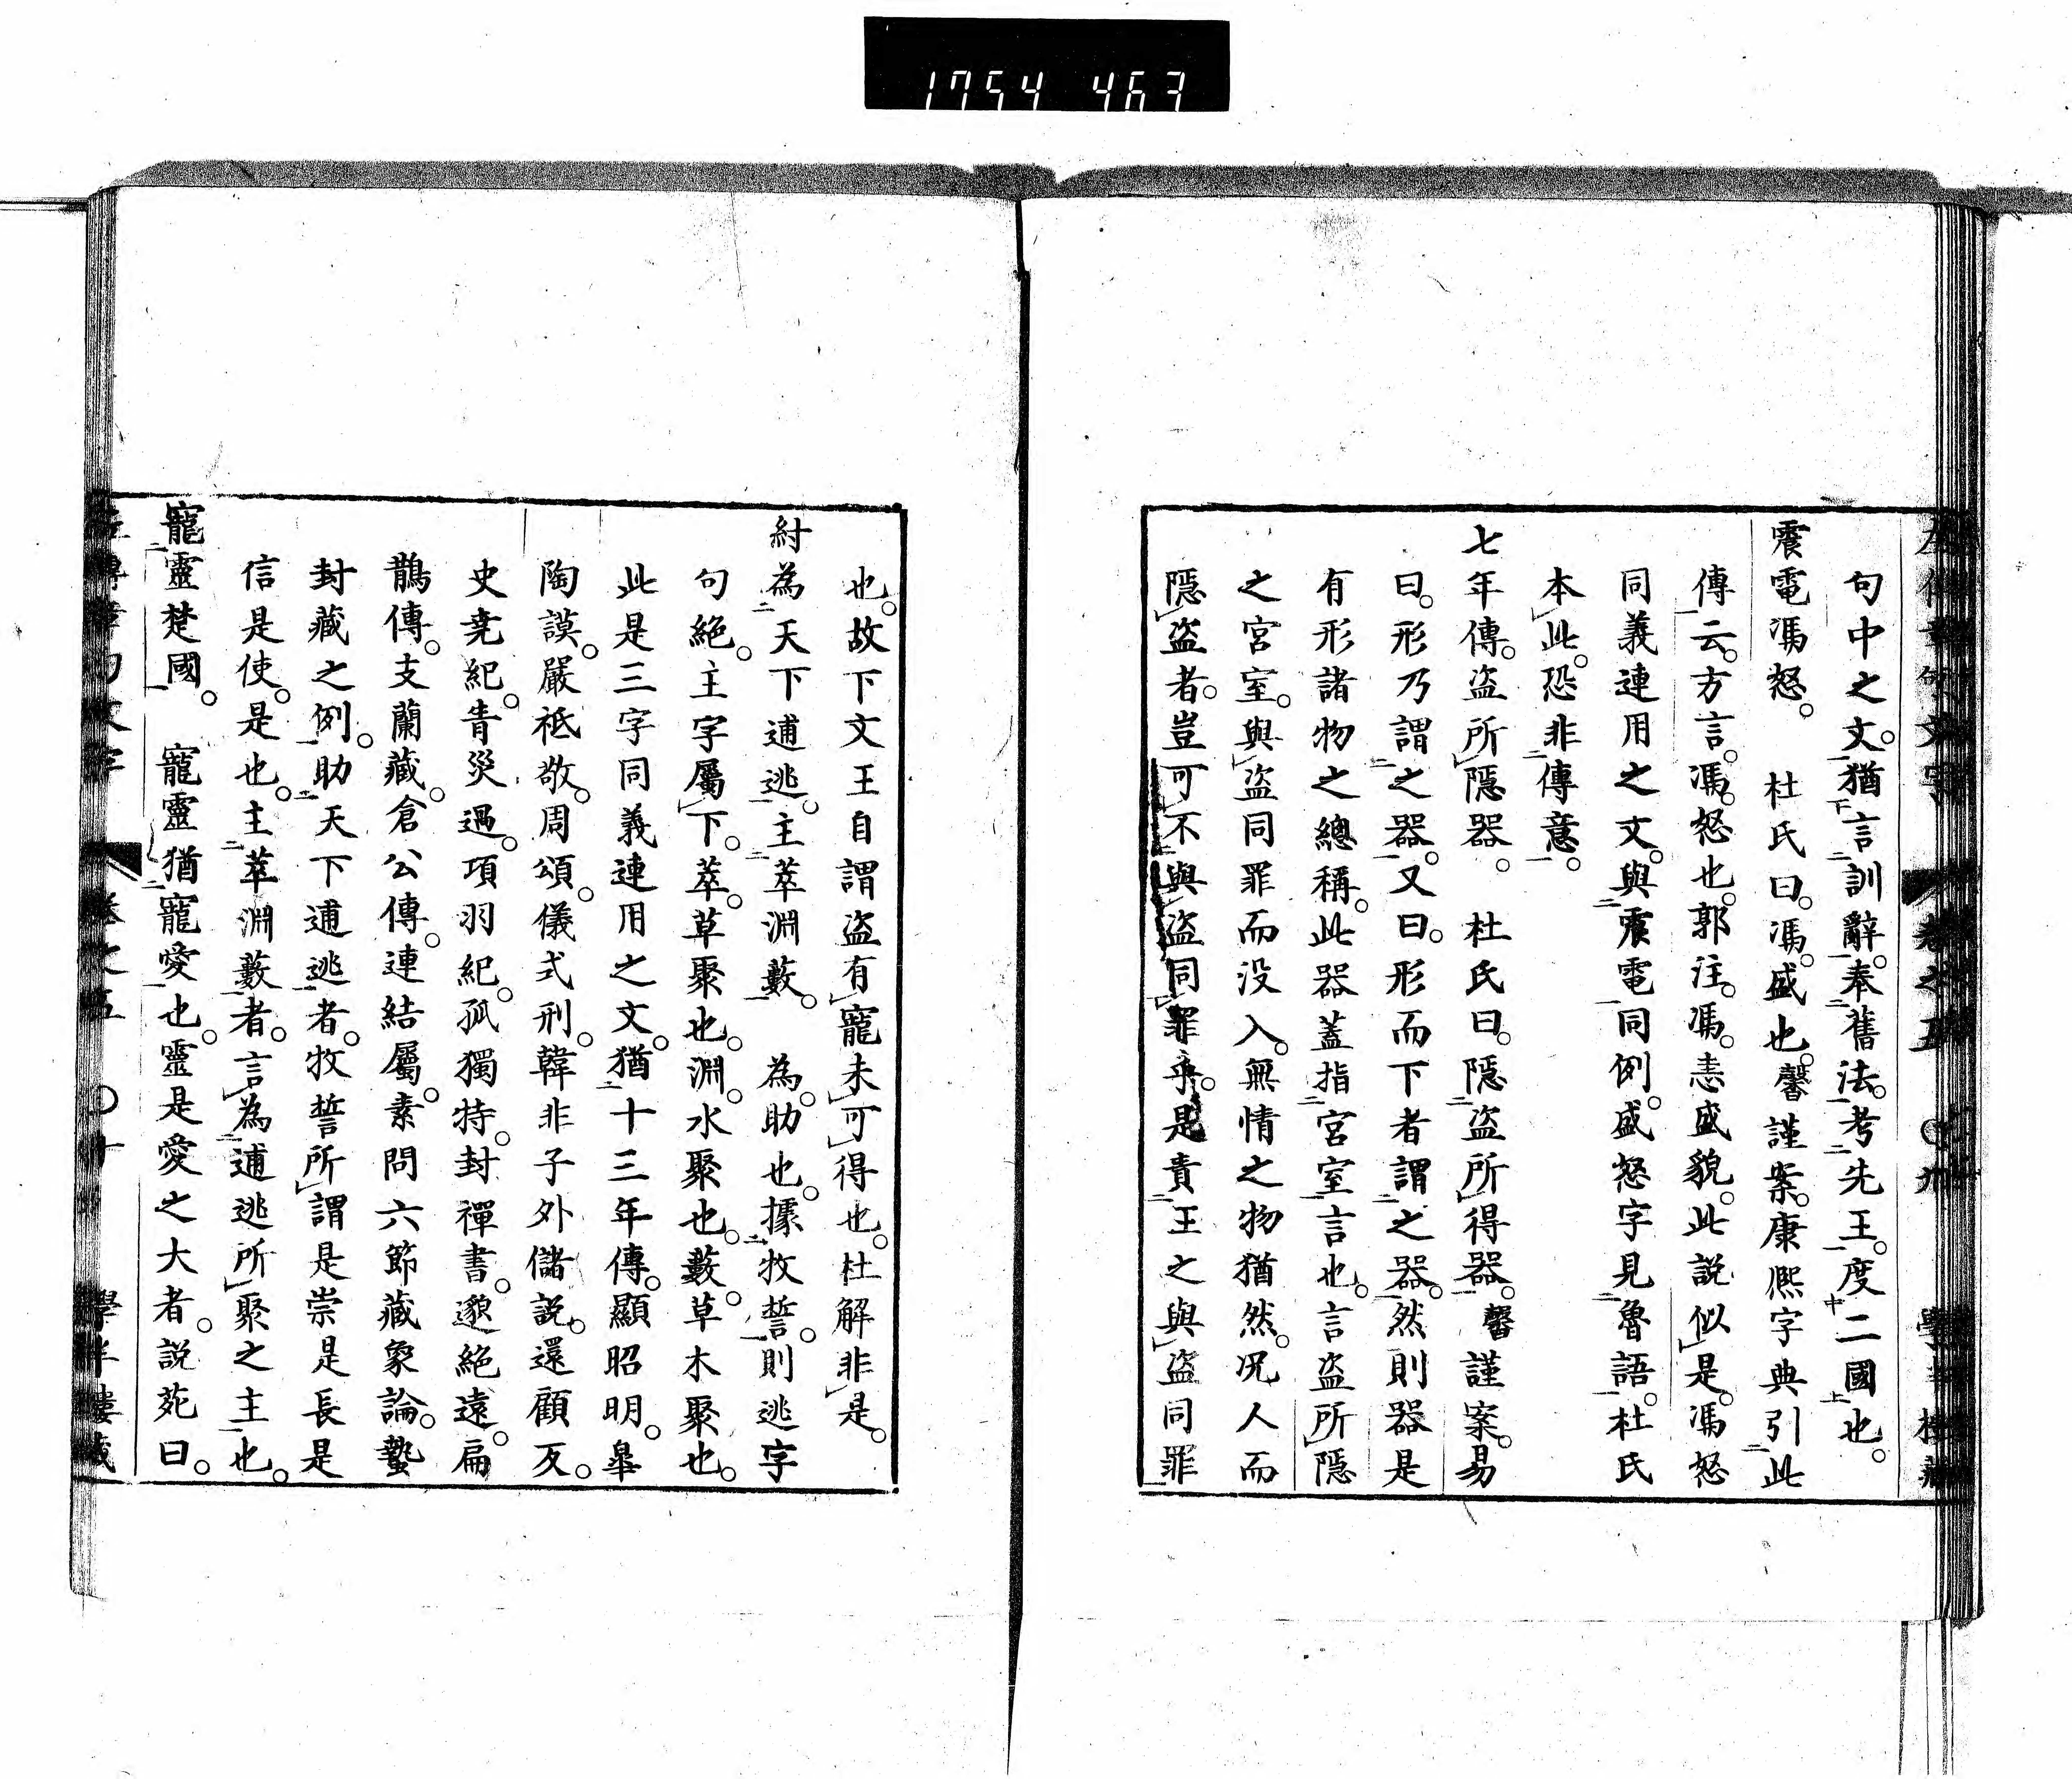 1754 463
左傳章句文字 卷之五 ○九 學半樓藏
句中之文。猶言訓辭。奉舊法。考先王。度二國也。
震電馮怒。 杜氏曰。馮。盛也。馨謹案。康熙字典引此
傳云。方言。馮。怒也。郭注。馮。恚盛貌。此説似是。馮怒
同義連用之文。與震電同例。盛怒字見魯語。杜氏
本此。恐非傳意。
七年傳。盜所隱器。 杜氏曰。隱盜所得器。馨謹案。易
曰。形乃謂之器。又曰。形而下者謂之器。然則器是
有形諸物之總稱。此器蓋指宮室言也。言盜所隱
之宮室。與盜同罪而没入。無情之物猶然。况人而
隱盜者。豈可不與盜同罪乎。是責王之與盜同罪
也。故下文王自謂盜有寵未可得也。杜解非是。
紂為天下逋逃。主萃淵藪。 為。助也。據牧誓。則逃字
句絶。主字屬下。萃。草聚也。淵。水聚也。藪。草木聚也。
此是三字同義連用之文。猶十三年傳。顯昭明。皐
陶謨。嚴祗敬。周頌。儀式刑。韓非子外儲説。還顧反。
史堯紀。眚災過。項羽紀。孤獨特。封禪書。邈絶遠。扁
鵲傳。支蘭藏。倉公傳。連結屬。素問六節藏象論。蟄
封藏之例。助天下逋逃者。牧誓所謂是崇是長是
信是使。是也。主萃淵藪者。言為逋逃所聚之主也。
寵靈楚國。 寵靈猶寵愛也。靈是愛之大者。説苑曰。
左傳章句文字 卷之五 ○十 學半樓藏